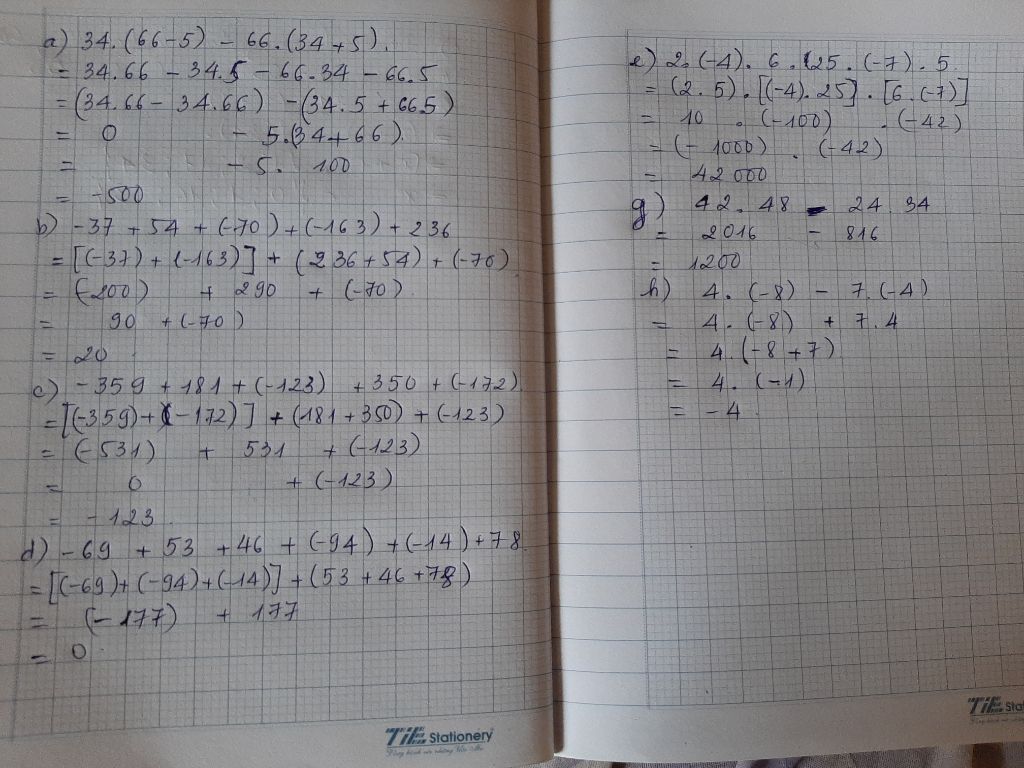 a) 34.(66-5) - 66.(34+5).
= 34.66 - 34.5 - 66.34 - 66.5
= (34.66 - 34.66) - (34.5 + 66.5)
= 0 - 5.(34+66).
= - 5. 100
= -500
b) -37 + 54 + (-70) + (-163) + 236
= [(-37) + (-163)] + (236+54) + (-70)
= (-200) + 290 + (-70)
= 90 + (-70)
= 20
c) -359 + 181 + (-123) + 350 + (-172)
= [(-359) + (-172)] + (181 + 350) + (-123)
= (-531) + 531 + (-123)
= 0 + (-123)
= -123
d) -69 + 53 + 46 + (-94) + (-14) + 78
= [(-69) + (-94) + (-14)] + (53 + 46 + 78)
= (-177) + 177
= 0
TiE Stationery
e) 2.(-4). 6. 25. (-7). 5.
= (2. 5). [(-4). 25]. [6. (-7)]
= 10 . (-100) . (-42)
= (- 1000) . (-42)
= 42000
g) 42. 48 - 24. 34
= 2016 - 816
= 1200
h) 4. (-8) - 7.(-4)
= 4. (-8) + 7. 4
= 4. (-8 + 7)
= 4. (-1)
= -4
TiE Stat